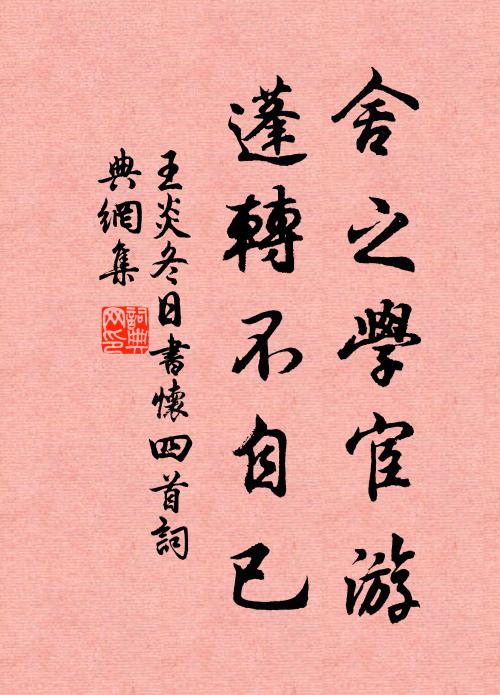 舍之學宦游
蓬轉不自已
王炎冬日書懷四首詞
典網集
詞典
网印